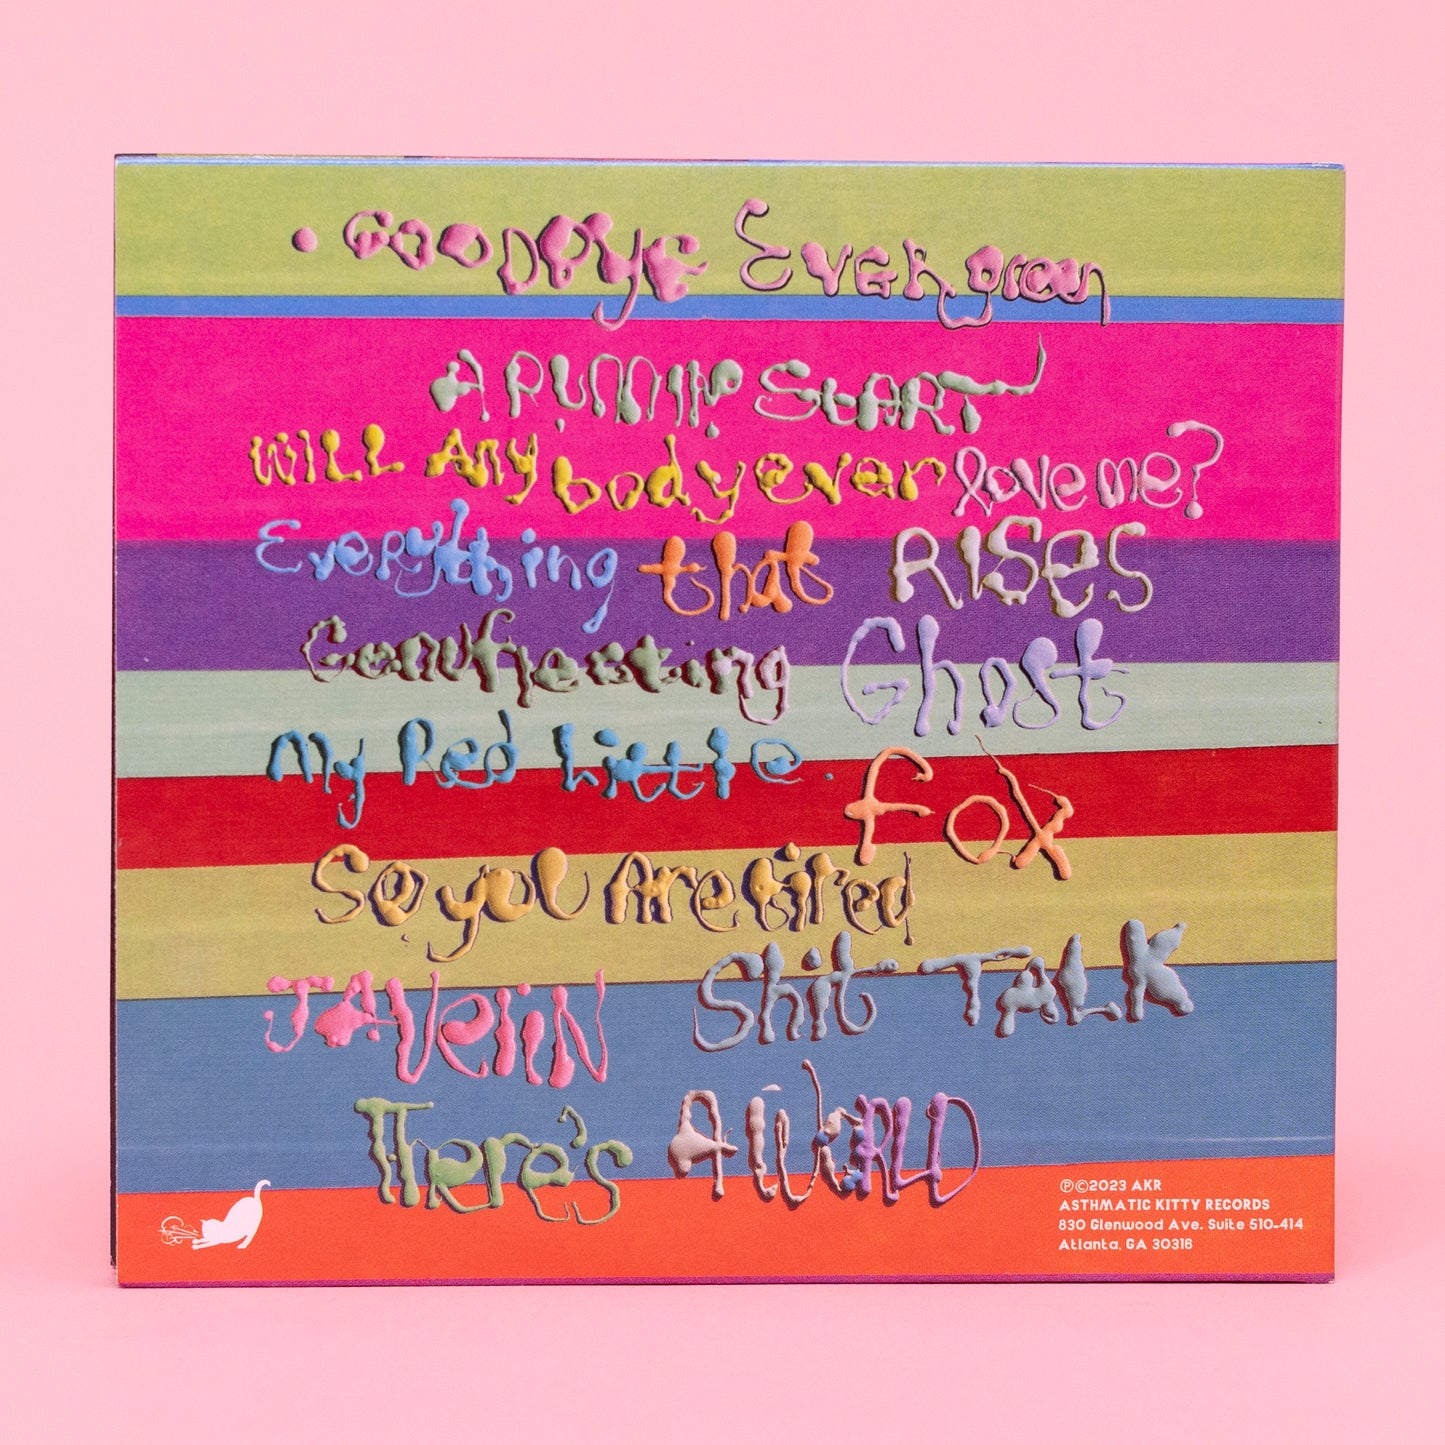 • GOODBYE EVERgreen
A RUNNING START
WILL Any body ever love me?
Everything that RISES
Genuflecting Ghost
My Red Little. Fox
So you Are tired
JAVeliN Shit TALK
There's A WoRLD
℗©2023 AKR
ASTHMATIC KITTY RECORDS
830 Glenwood Ave. Suite 510-414
Atlanta, GA 30316